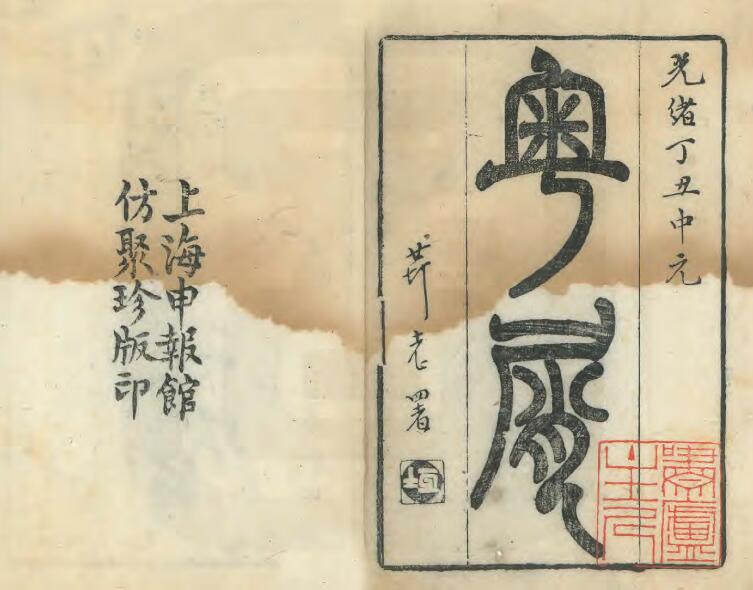 光緒丁丑中元
粵屑
老署
上海申報館
仿聚珍版印